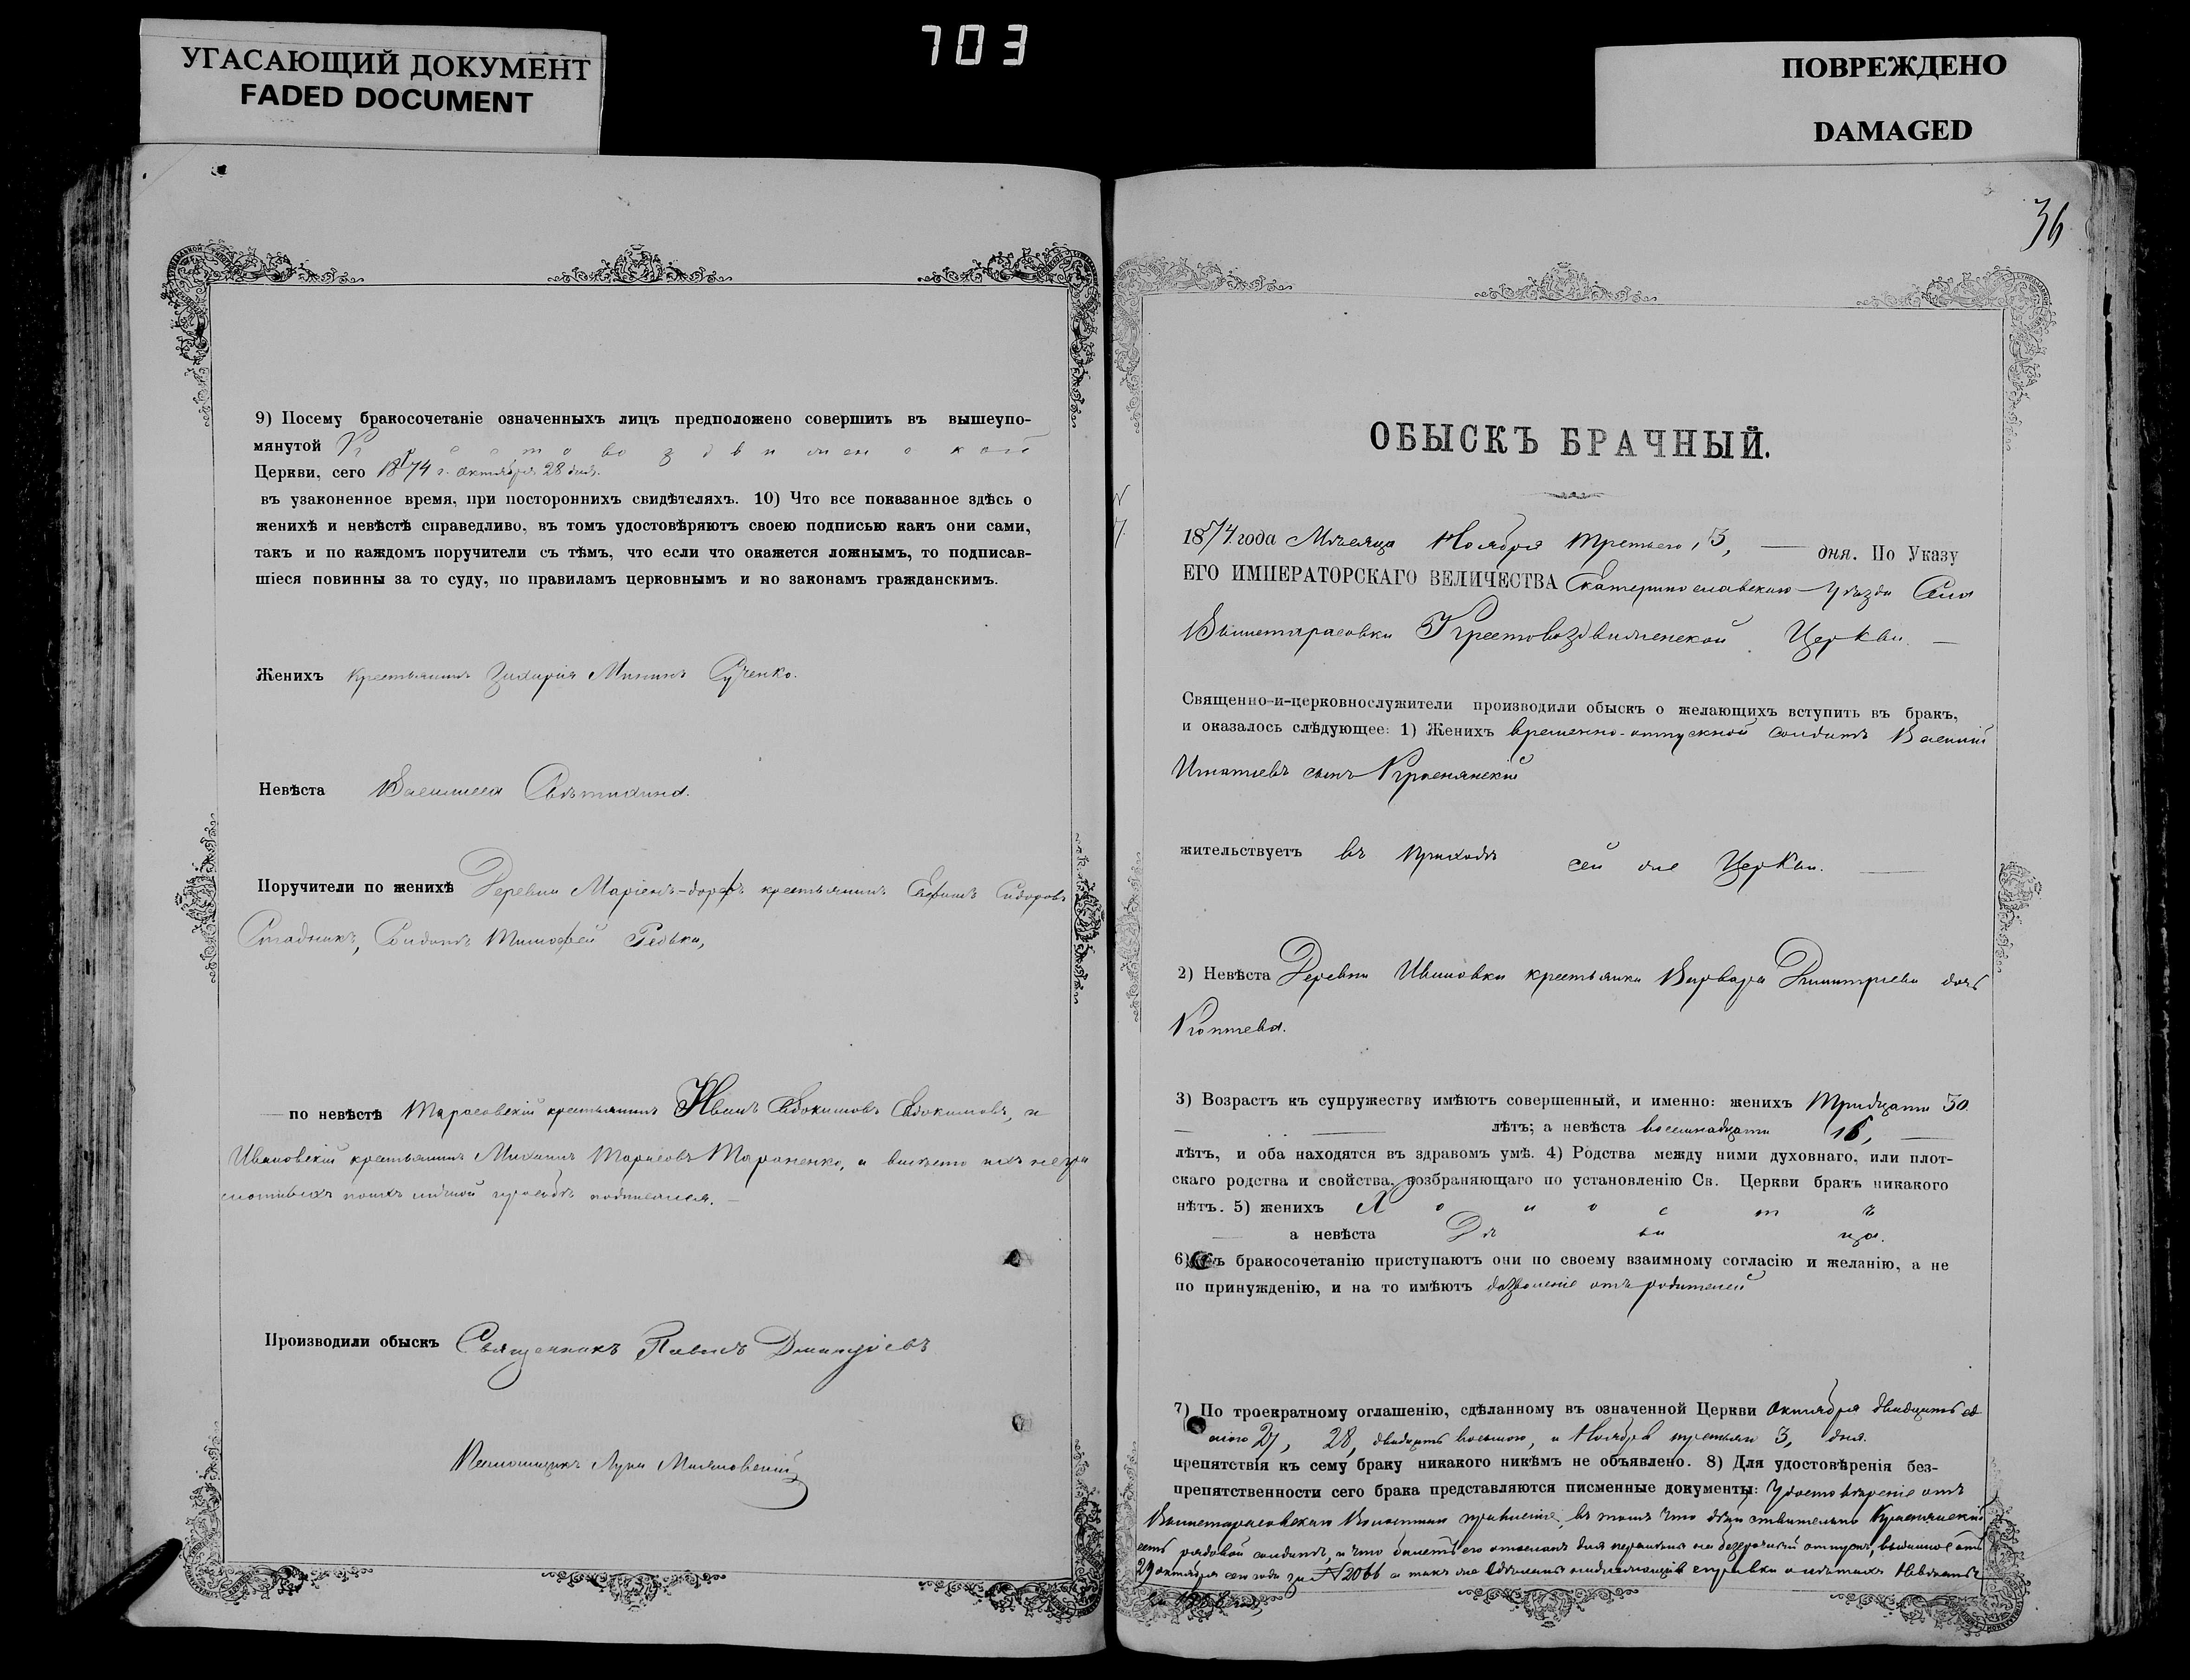 УГАСАЮЩИЙ ДОКУМЕНТ
FADED DOCUMENT
703
ПОВРЕЖДЕНО
DAMAGED
9) Посему бракосочетаніе означенныхъ лицъ предположено совершить въ вышеупо-
мянутой Крестовоздвиженской
Церкви, сего 1874 г. октября 28 дня.
въ узаконенное время, при постороннихъ свидѣтеляхъ. 10) Что все показанное здѣсь о
женихѣ и невѣстѣ справедливо, въ томъ удостовѣряютъ своею подписью какъ они сами,
такъ и по каждомъ поручители съ тѣмъ, что если что окажется ложнымъ, то подписав-
шіеся повинны за то суду, по правиламъ церковнымъ и по законамъ гражданскимъ.
Женихъ крестьянинъ Захарія Мининъ
Невѣста Василиса
Поручители по женихѣ Деревни Маріенъ-дорфъ крестьянинъ Ефимъ Сидоровъ
Стадникъ, Солдатъ Тимофей Редька,
по невѣстѣ Тарасовскій крестьянинъ Иванъ Евдокимовъ Евдокимовъ, и
Ивановскій крестьянинъ Михаилъ Тарасовъ Тараненко, а вмѣсто ихъ негра
мотныхъ по ихъ личной просьбѣ подписался.
Производили обыскъ Священникъ Павелъ Димитріевъ
Псаломщикъ Лука
36
ОБЫСКЪ БРАЧНЫЙ.
1874 года Мѣсяца Ноября Третьего, 3, дня. По Указу
ЕГО ИМПЕРАТОРСКАГО ВЕЛИЧЕСТВА Екатеринославскаго Уѣзда Села
Вышетарасовки Крестовоздвиженской Церкви.
Священно-и-церковнослужители производили обыскъ о желающихъ вступить въ бракъ,
и оказалось слѣдующее: 1) Женихъ временно-отпускной солдатъ Василій
Игнатіевъ сынъ Краснянскій
жительствуетъ въ приходѣ сей же Церкви.
2) Невѣста Деревни Ивановки крестьянка Варвара Димитріева дочь
Коптева.
3) Возрастъ къ супружеству имѣютъ совершенный, и именно: женихъ Тридцати 30.
лѣтъ; а невѣста восемнадцати
лѣтъ, и оба находятся въ здравомъ умѣ. 4) Родства между ними духовнаго, или плот-
скаго родства и свойства, возбраняющаго по установленію Св. Церкви бракъ никакого
нѣтъ. 5) женихъ Холостъ
а невѣста Дѣвица.
6) Къ бракосочетанію приступаютъ они по своему взаимному согласію и желанію, а не
по принужденію, и на то имѣютъ дозволеніе отъ родителей
7) По троекратному оглашенію, сдѣланному въ означенной Церкви октября двадцать сѣ
27, 28, двадцать восьмого, и Ноября третьяго 3, дня.
препятствія къ сему браку никакого никѣмъ не объявлено. 8) Для удостовѣренія без-
препятственности сего брака представляются писменные документы: Удостовѣреніе отъ
Вышетарасовскаго Волостнаго правленія, въ томъ что дѣйствительно Краснянскій
есть рядовой солдатъ, и что билетъ его отосланъ для перемѣны на безсрочный отпускъ, выданное отъ
29 октября сего года за № 2066 а также